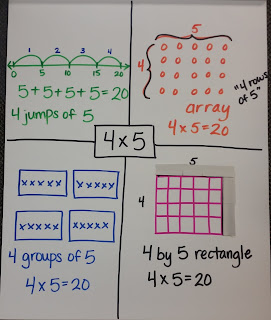 1 2 3 4
0 5 10 15 20
5+5+5+5=20
4 jumps of 5
5
4
array
4x5=20
"4 rows
of 5"
4x5
xxxxx xxxxx
xxxxx xxxxx
4 groups of 5
4x5=20
5
4
4 by 5 rectangle
4x5=20